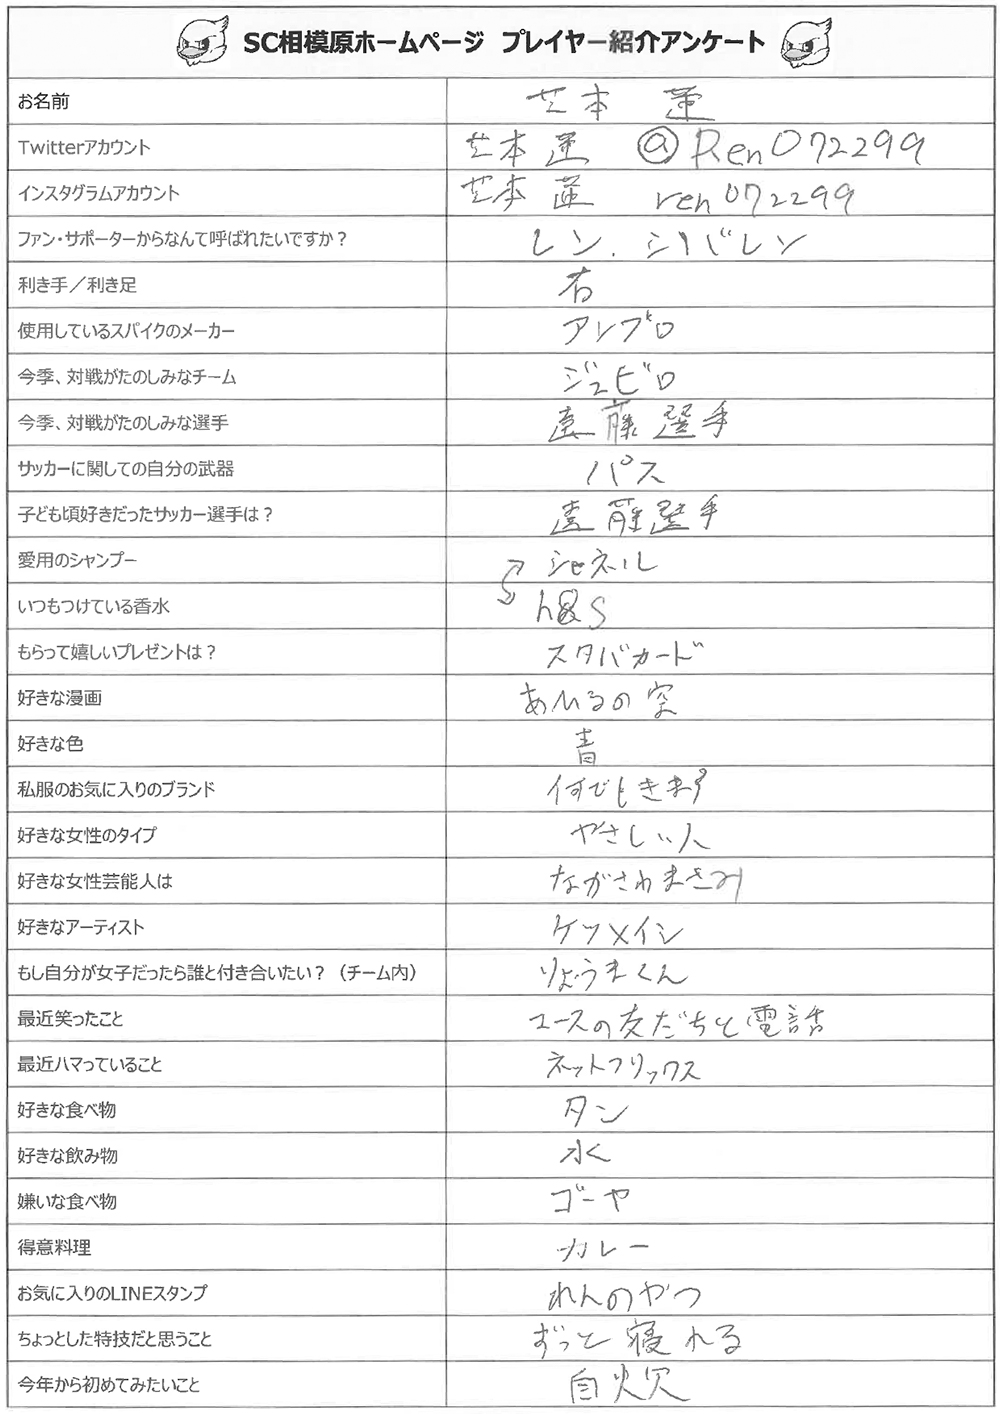 SC相模原ホームページ プレイヤー紹介アンケート
お名前 芝本 蓮
Twitterアカウント 芝本 蓮 @Ren072299
インスタグラムアカウント 芝本 蓮 ren072299
ファン・サポーターからなんて呼ばれたいですか？ レン、シバレン
利き手／利き足 右
使用しているスパイクのメーカー アンブロ
今季、対戦がたのしみなチーム ジュビロ
今季、対戦がたのしみな選手 遠藤選手
サッカーに関しての自分の武器 パス
子ども頃好きだったサッカー選手は？ 遠藤選手
愛用のシャンプー シャネル
いつもつけている香水 h&S
もらって嬉しいプレゼントは？ スタバカード
好きな漫画 あひるの空
好きな色 青
私服のお気に入りのブランド 何でもきます
好きな女性のタイプ やさしい人
好きな女性芸能人は ながさわまさみ
好きなアーティスト ケツメイシ
もし自分が女子だったら誰と付き合いたい？（チーム内） りょうまくん
最近笑ったこと ユースの友だちと電話
最近ハマっていること ネットフリックス
好きな食べ物 タン
好きな飲み物 水
嫌いな食べ物 ゴーヤ
得意料理 カレー
お気に入りのLINEスタンプ れんのやつ
ちょっとした特技だと思うこと ずっと寝れる
今年から初めてみたいこと 自炊